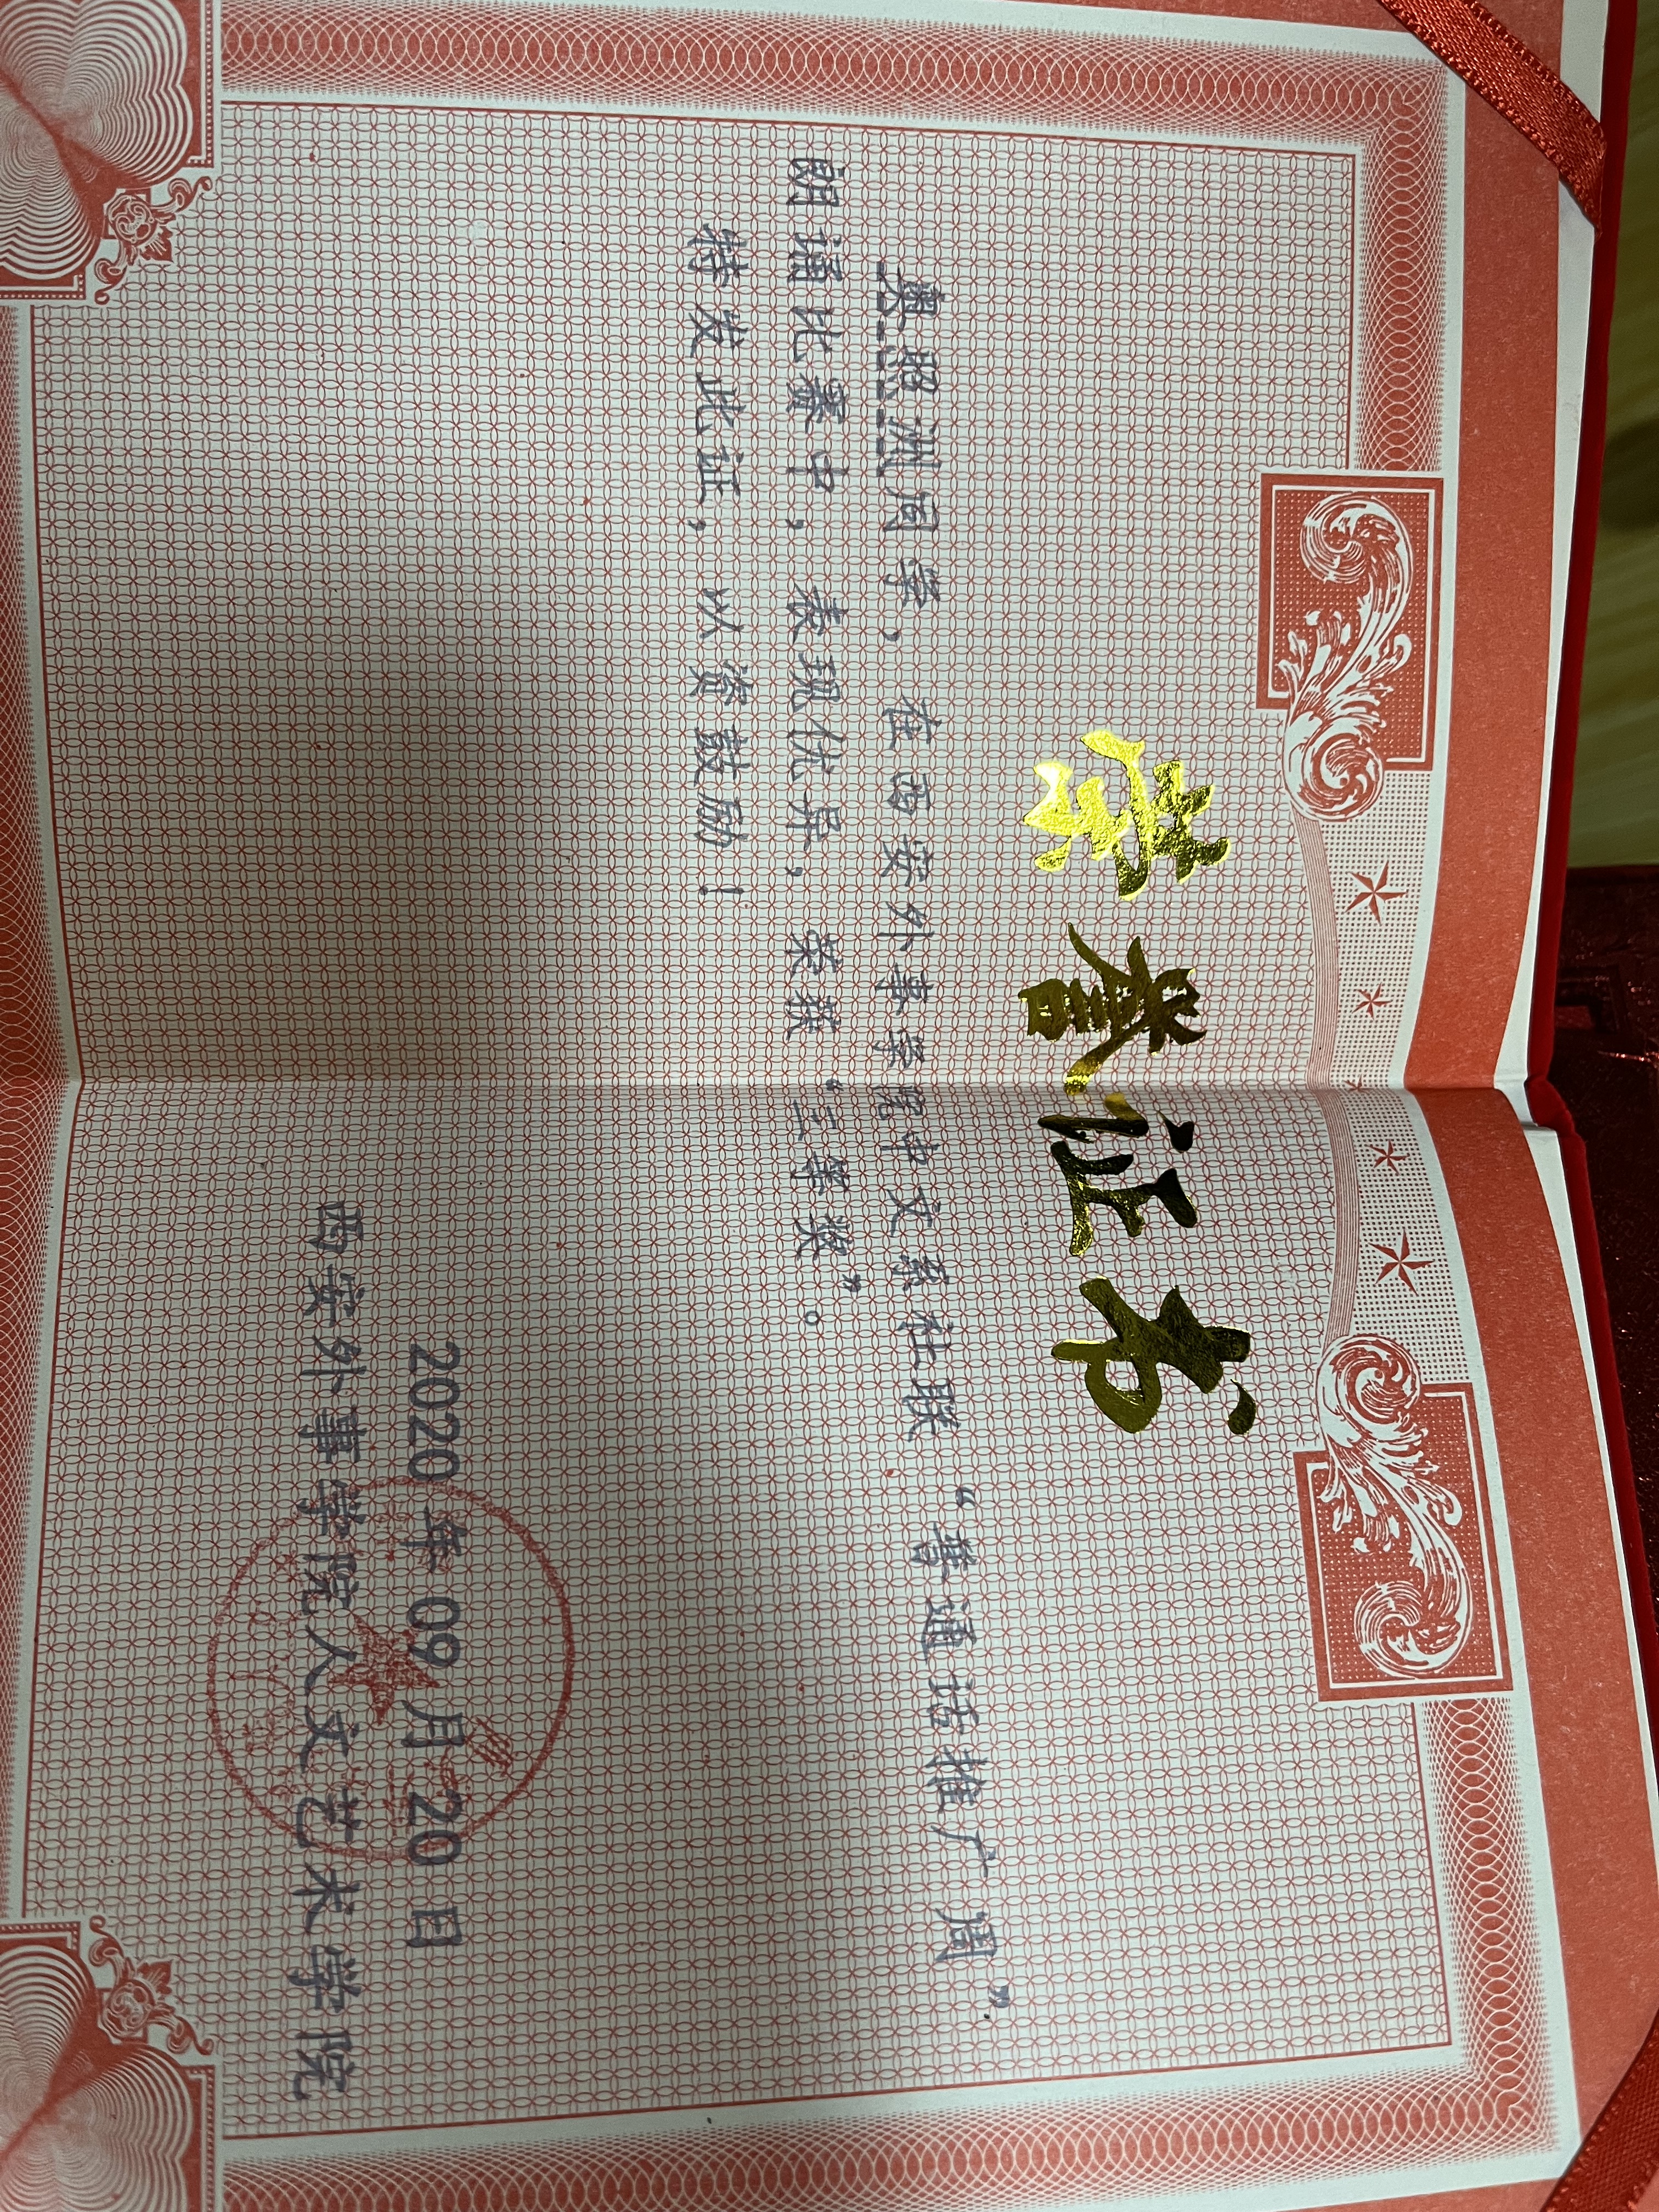 荣誉证书
奥照洲同学，在西安外事学院中文系社联“普通话推广周”
朗诵比赛中，表现优异，荣获“三等奖”。
特发此证，以资鼓励！
2020 年 09 月 20 日
西安外事学院人文艺术学院